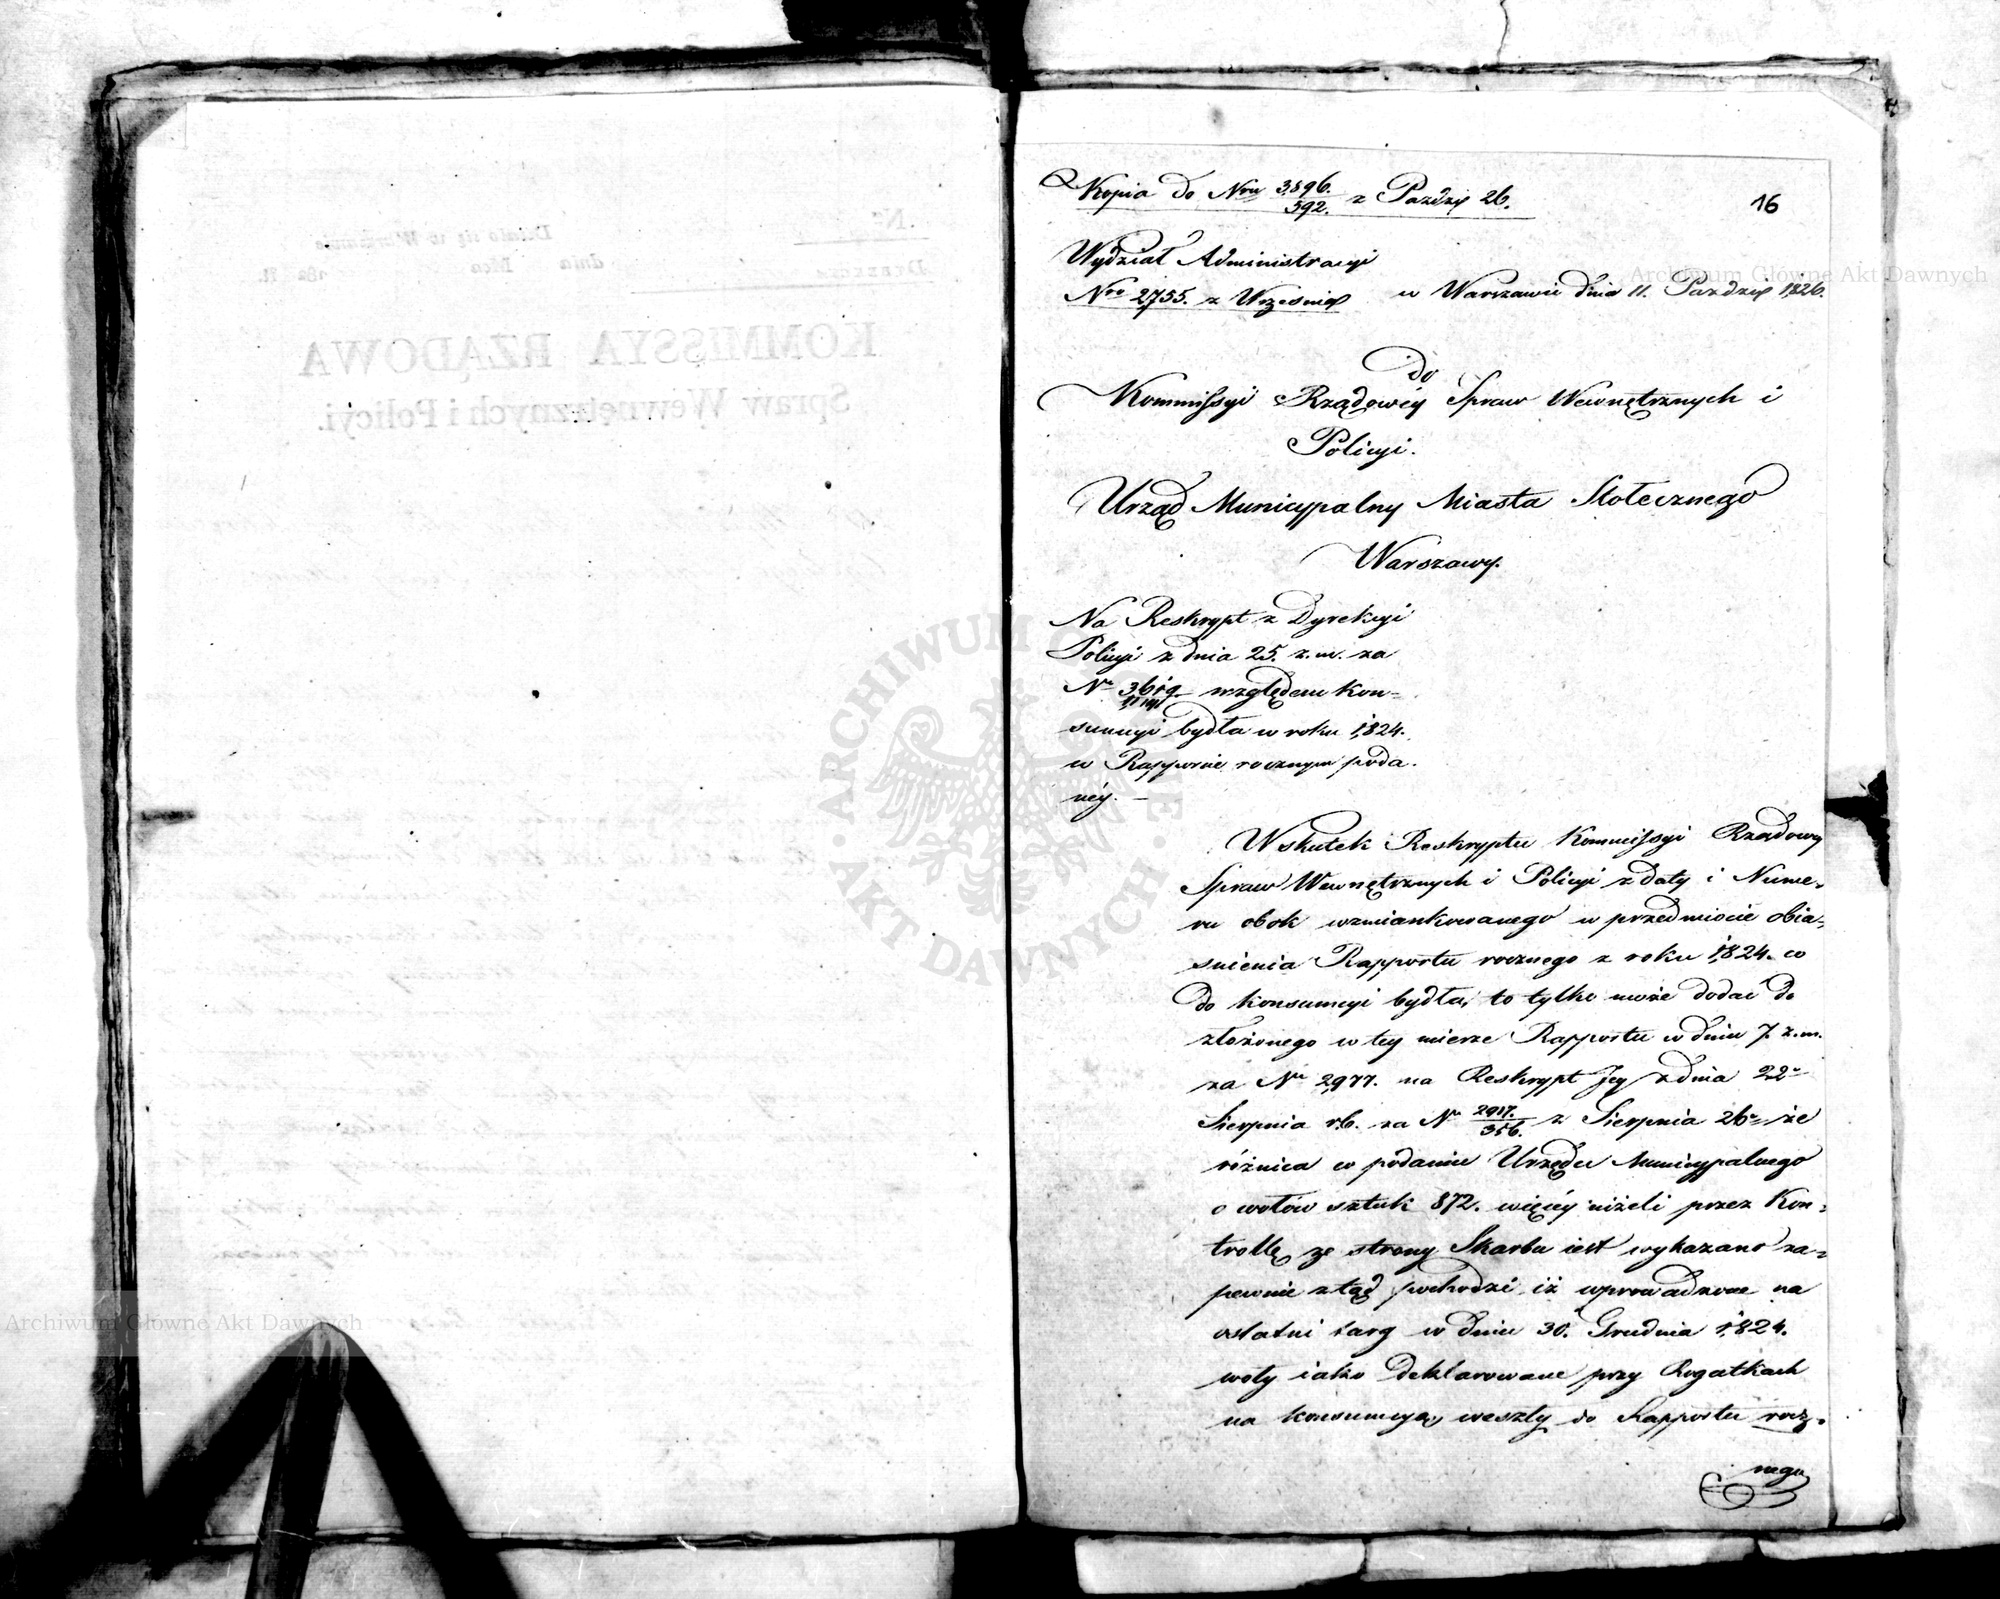 Kopia do Nru 3896./592. z Paździ 26.
16
Wydział Administracyi
Nro 2755. z Września
w Warszawie dnia 11. Paździ 1826.
do
Kommissyi Rządowey Spraw Wewnętrznych i
Policyi.
Urząd Municypalny Miasta Stołecznego
Warszawy.
Na Reskrypt z Dyrekcyi
Policyi z dnia 25. z.m. za
Nr względem kon-
sumcyi bydła w roku 1824.
w Rapporcie rocznym poda-
néy. —
W skutek Reskryptu Kommissyi Rządowey
Spraw Wewnętrznych i Policyi z daty i Nume-
ru obok wzmiankowanego w przedmiocie obia-
śnienia Rapportu rocznego z roku 1824. co
do konsumcyi bydła, to tylko może dodać do
złożonego w tey mierze Rapportu w dniu 7. z.m.
za Nr 2977. na Reskrypt Jey z dnia 22
Sierpnia r.b. za Nr 2917./356. z Sierpnia 26 że
różnica w podaniu Urzędu Municypalnego
o wołów sztuk 872. więcéy niżeli przez Kon-
trollę ze strony Skarbu iest wykazano za-
pewnie ztąd pochodzi iż wprowadzone na
ostatni targ w dniu 30. Grudnia 1824.
woły iako deklarowane przy Rogatkach
na konsumcyą, weszły do Rapportu rocz-
nego
Archiwum Główne Akt Dawnych
Archiwum Główne Akt Dawnych
KOMMISSYA RZĄDOWA
Spraw Wewnętrznych i Policyi.